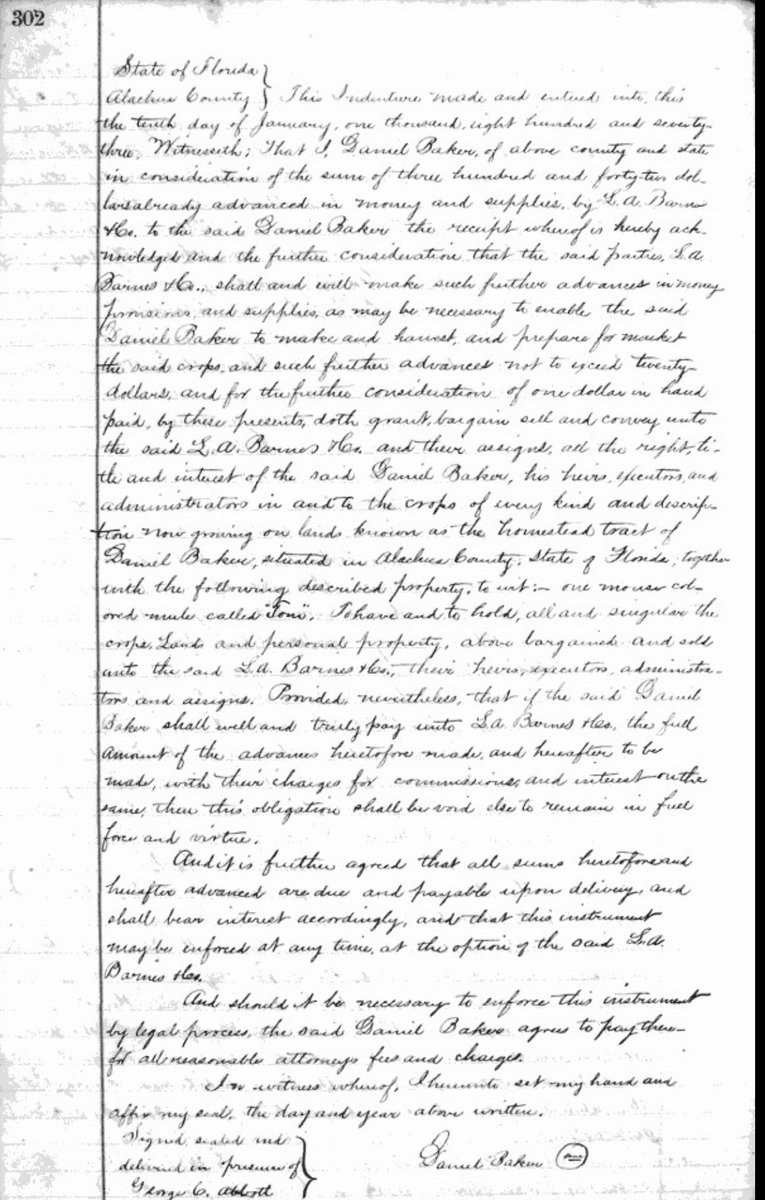 302
State of Florida }
Alachua County } This Indenture made and entered into, this
the tenth day of January, one thousand, eight hundred and seventy-
three, Witnesseth; That I, Daniel Baker, of above county and state
in consideration of the sum of three hundred and forty-two dol-
lars already advanced in money and supplies, by L. A. Barnes
& Co. to the said Daniel Baker the receipt whereof is hereby ack-
nowledged and the further consideration that the said parties, L. A.
Barnes & Co., shall and will make such further advances in money
provisions, and supplies, as may be necessary to enable the said
Daniel Baker to make and harvest, and prepare for market
the said crops, and such further advances not to exceed twenty-
dollars, and for the further consideration of one dollar in hand
paid, by these presents, doth grant, bargain sell and convey unto
the said L. A. Barnes & Co. and their assigns, all the right, ti-
tle and interest of the said Daniel Baker, his heirs, executors, and
administrators in and to the crops of every kind and descrip-
tion now growing on lands known as the homestead tract of
Daniel Baker, situated in Alachua County, State of Florida; together
with the following described property, to wit:- one mouse col-
ored mule called "Tom". To have and to hold, all and singular the
crops, Lands and personal property, above bargained and sold
unto the said L. A. Barnes & Co., their heirs, executors, administra-
tors and assigns. Provided, nevertheless, that if the said Daniel
Baker shall well and truly pay unto L. A. Barnes & Co., the full
amount of the advances heretofore made, and hereafter to be
made, with their charges for commissions, and interest on the
same, then this obligation shall be void else to remain in full
force and virtue.
And it is further agreed that all sums heretofore and
hereafter advanced are due and payable upon delivery, and
shall bear interest accordingly, and that this instrument
may be enforced at any time, at the option of the said L. A.
Barnes & Co.
And should it be necessary to enforce this instrument
by legal process, the said Daniel Baker agrees to pay there-
for all reasonable attorneys fees and charges.
In witness whereof, I hereunto set my hand and
affix my seal, the day and year above written.
Signed sealed and
delivered in presence of }
Daniel Baker
George C. Abbott